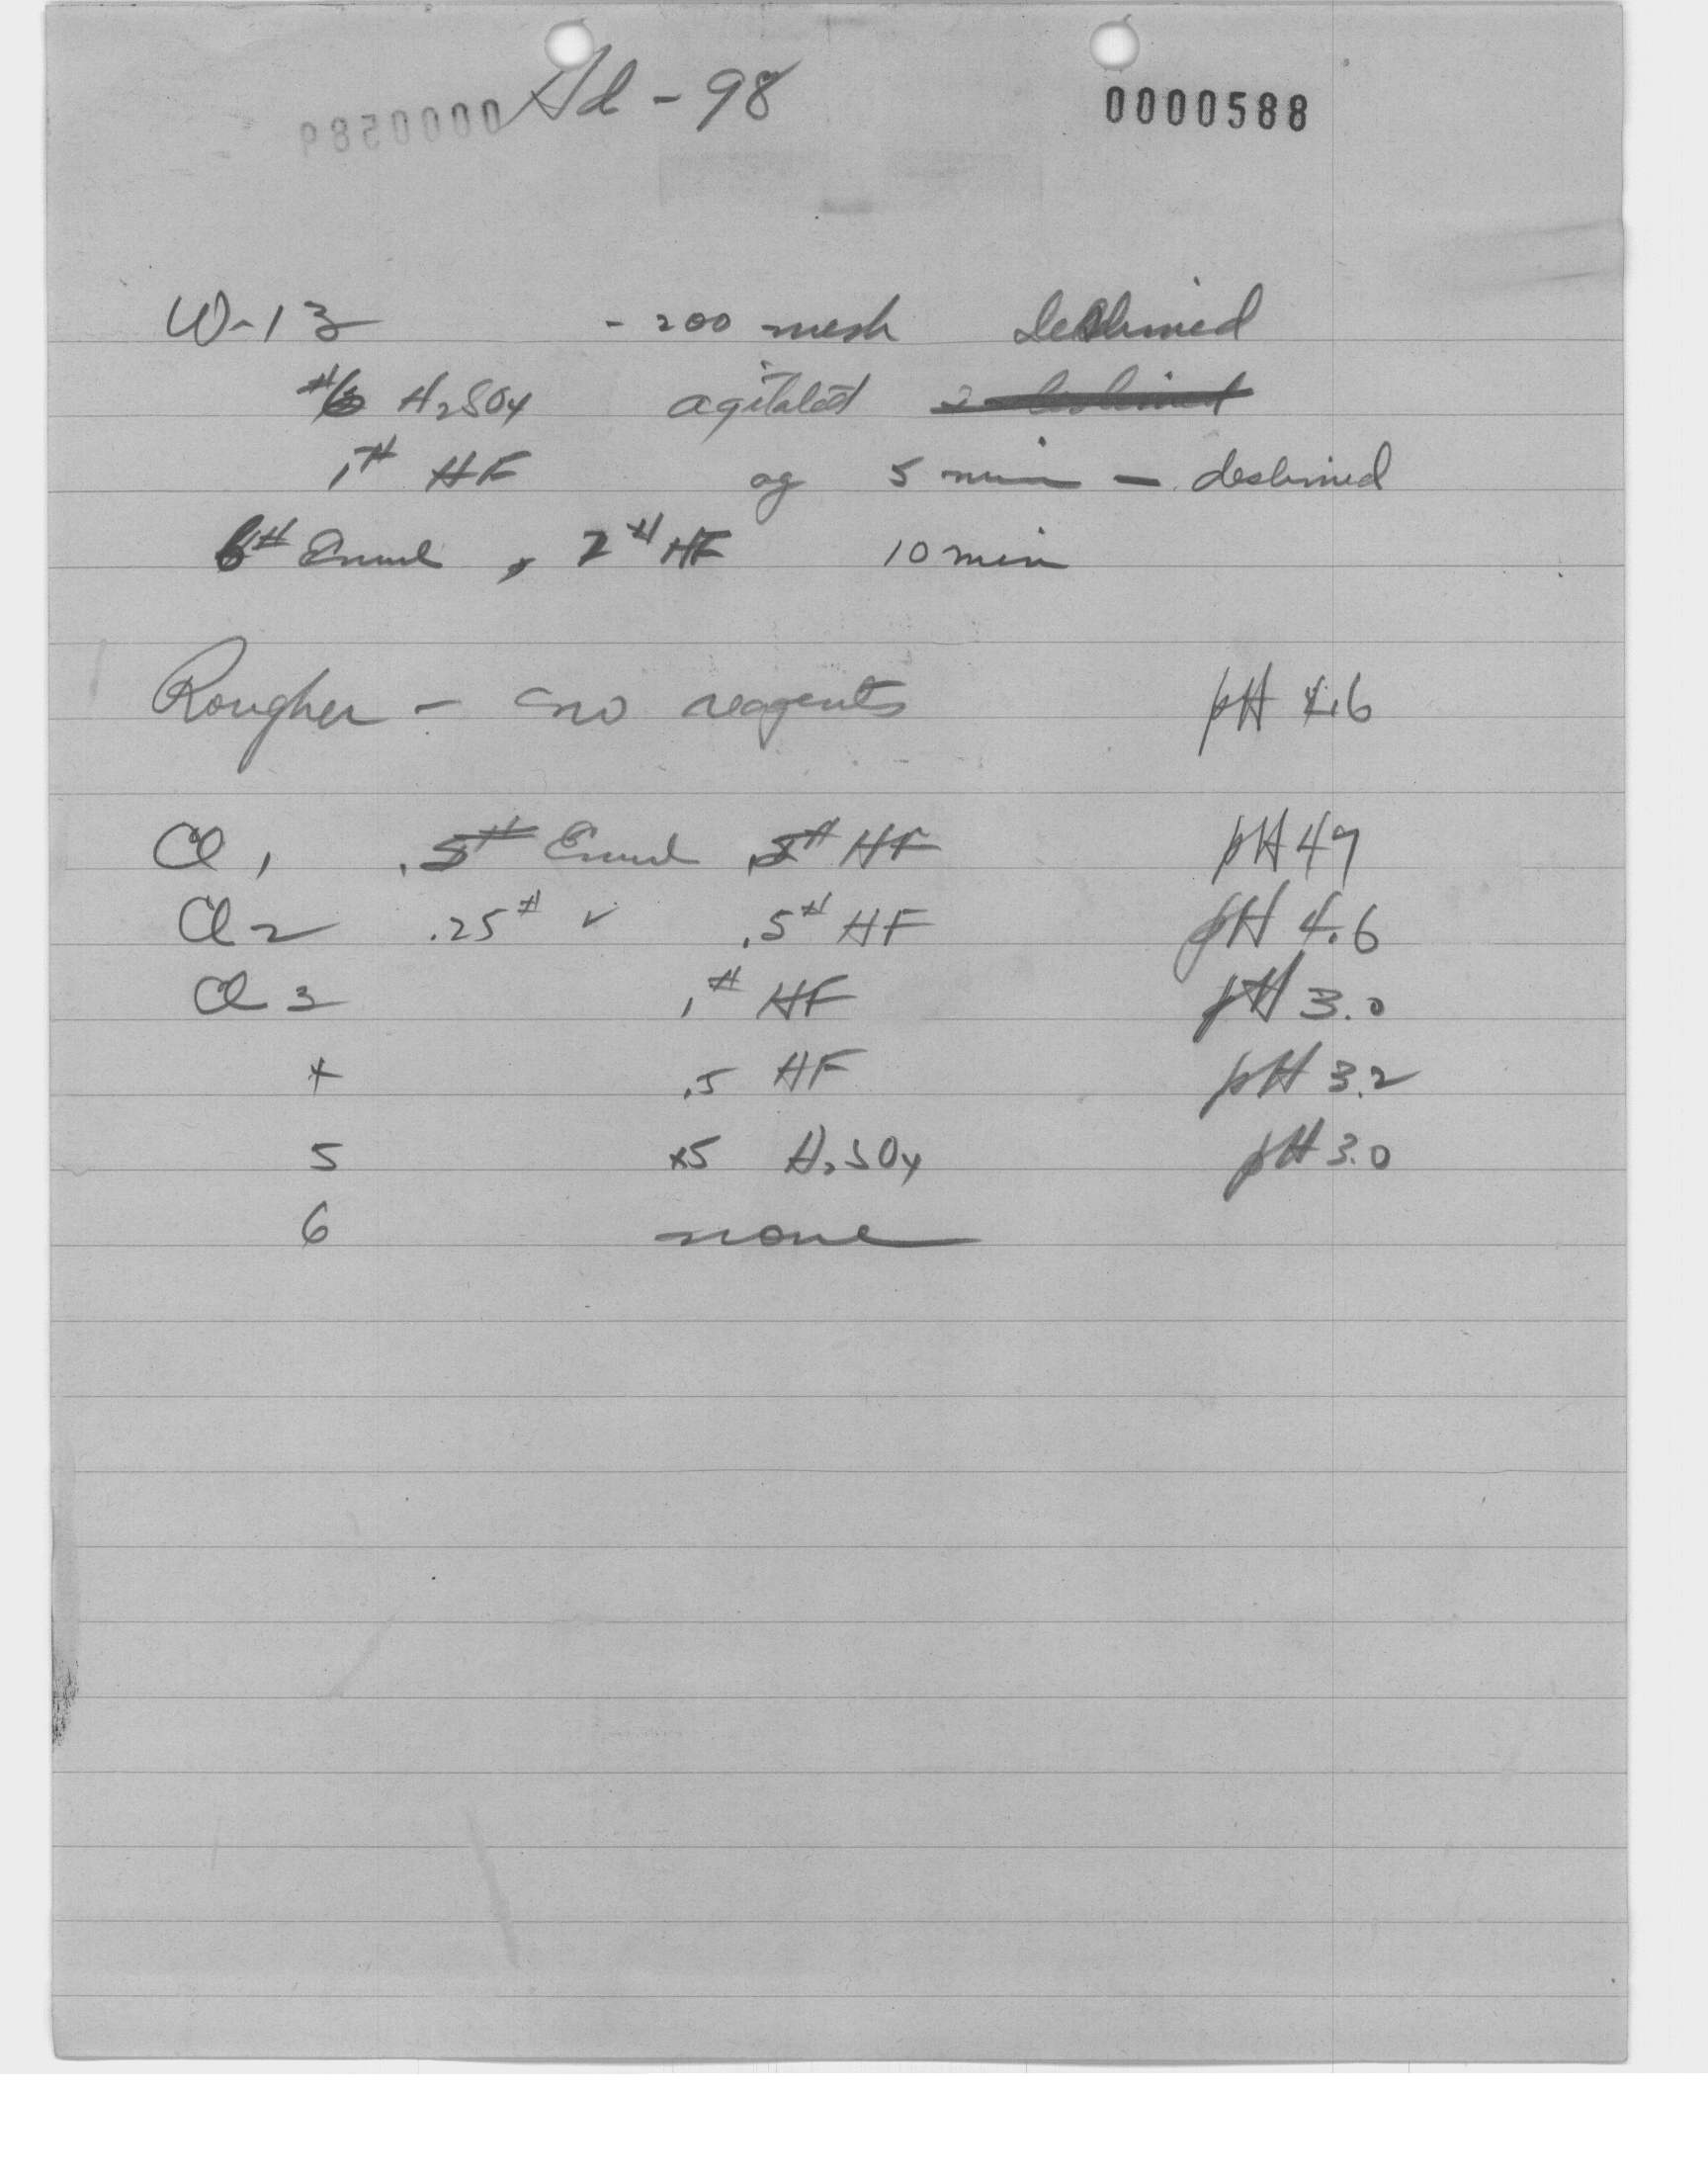 Ad - 98 0000588
0000589
W-13 - 200 mesh Deslimed
# H2SO4 agitated
1# HF ag 5 min - deslimed
6# Emul , 2# HF 10 min
Rougher - no reagents pH 4.6
Cl 1 .5# Emul .5# HF pH 4.9
Cl 2 .25# ✓ .5# HF pH 4.6
Cl 3 1# HF pH 3.0
4 .5 HF pH 3.2
5 .5 H2SO4 pH 3.0
6 none